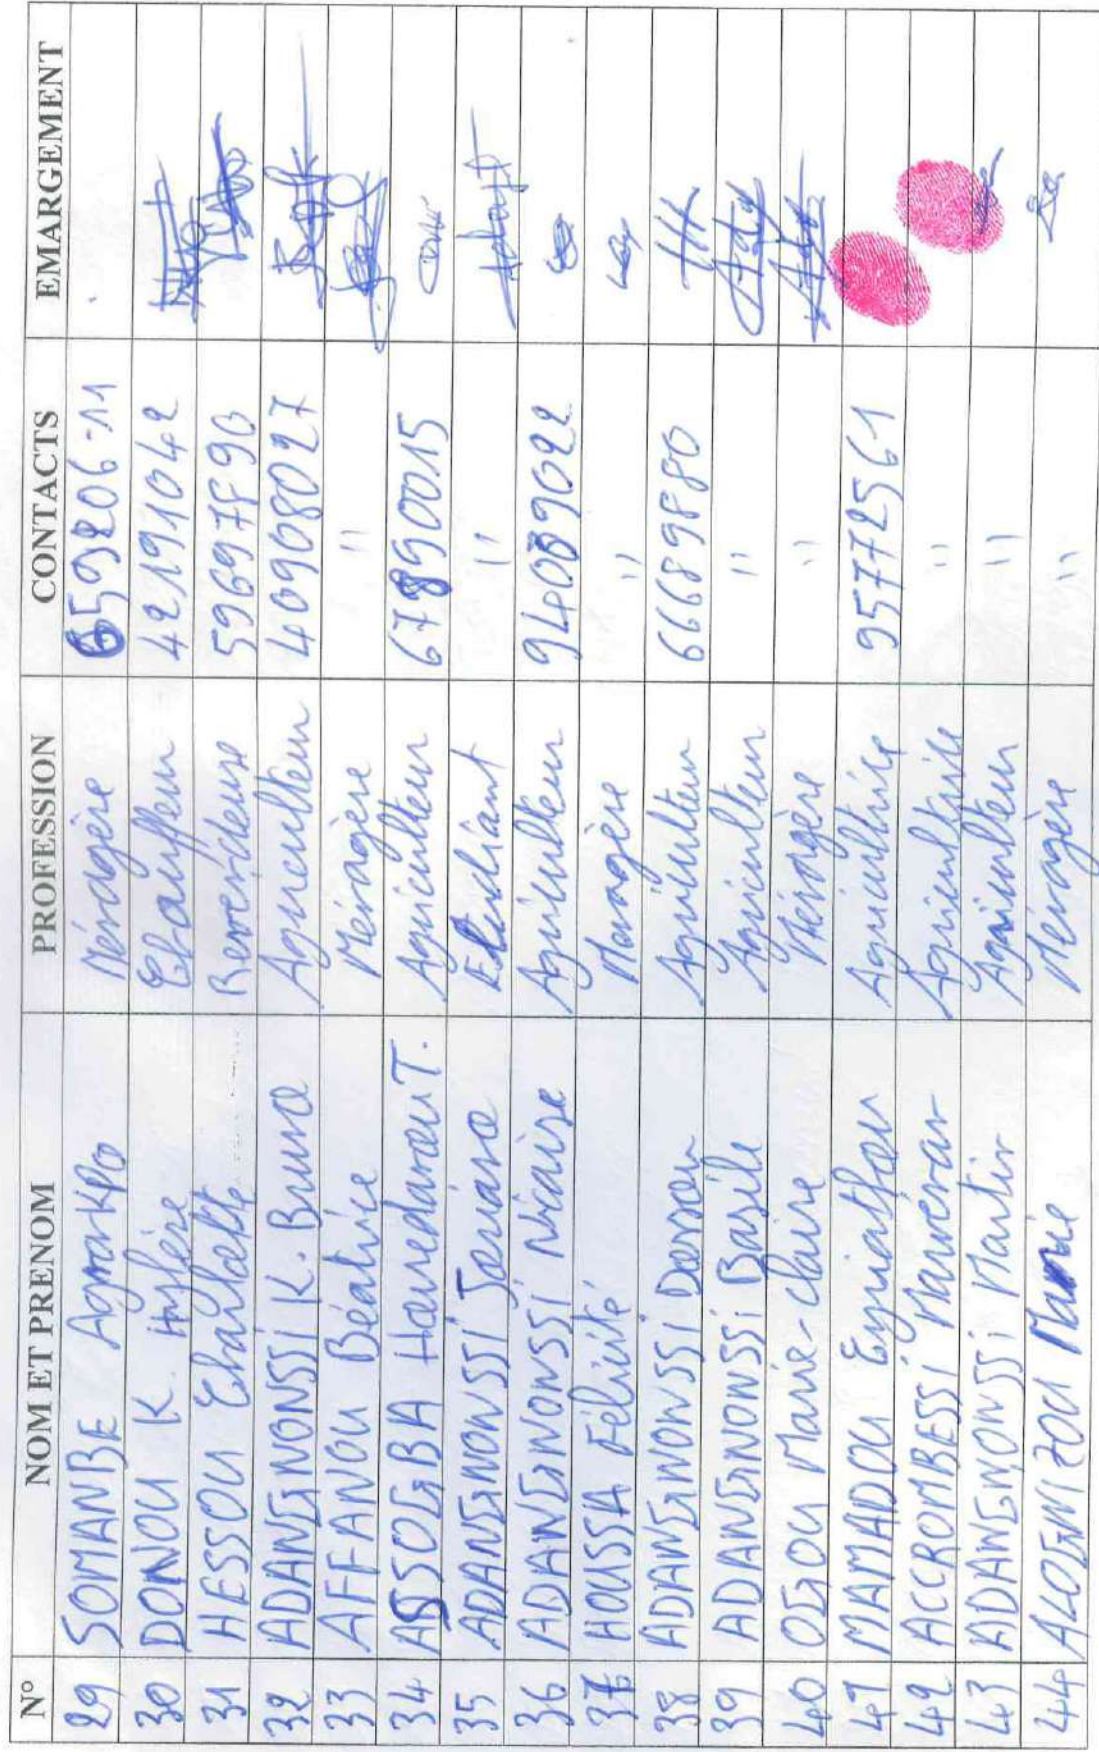 N° NOM ET PRENOM PROFESSION CONTACTS EMARGEMENT
29 SOMANBE Agnankpo Ménagère 659206-11
30 DONOU K. Chauffeur 42191042
31 HESSOU Charlotte Revendeuse
32 ADANGNONSSI K. Bruno Agriculteur 40908027
33 AFFANOU Béatrice Ménagère "
34 ASSOGBA T. Agriculteur 67890015
35 ADANGNONSSI Etudiant "
36 ADANGNONSSI Nicaise Agriculteur 94089022
37 HOUSSA Félicité Menagère "
38 ADANGNONSSI Dossou Agriculteur 66689880
39 ADANGNONSSI Basile Agriculteur "
40 OGOU Marie-claire Ménagère "
41 MAMADOU Agricultrice 95772561
42 ACCROMBESSI Agricultrice "
43 ADANGNONSSI Martin Agriculteur "
44 Ménagère "